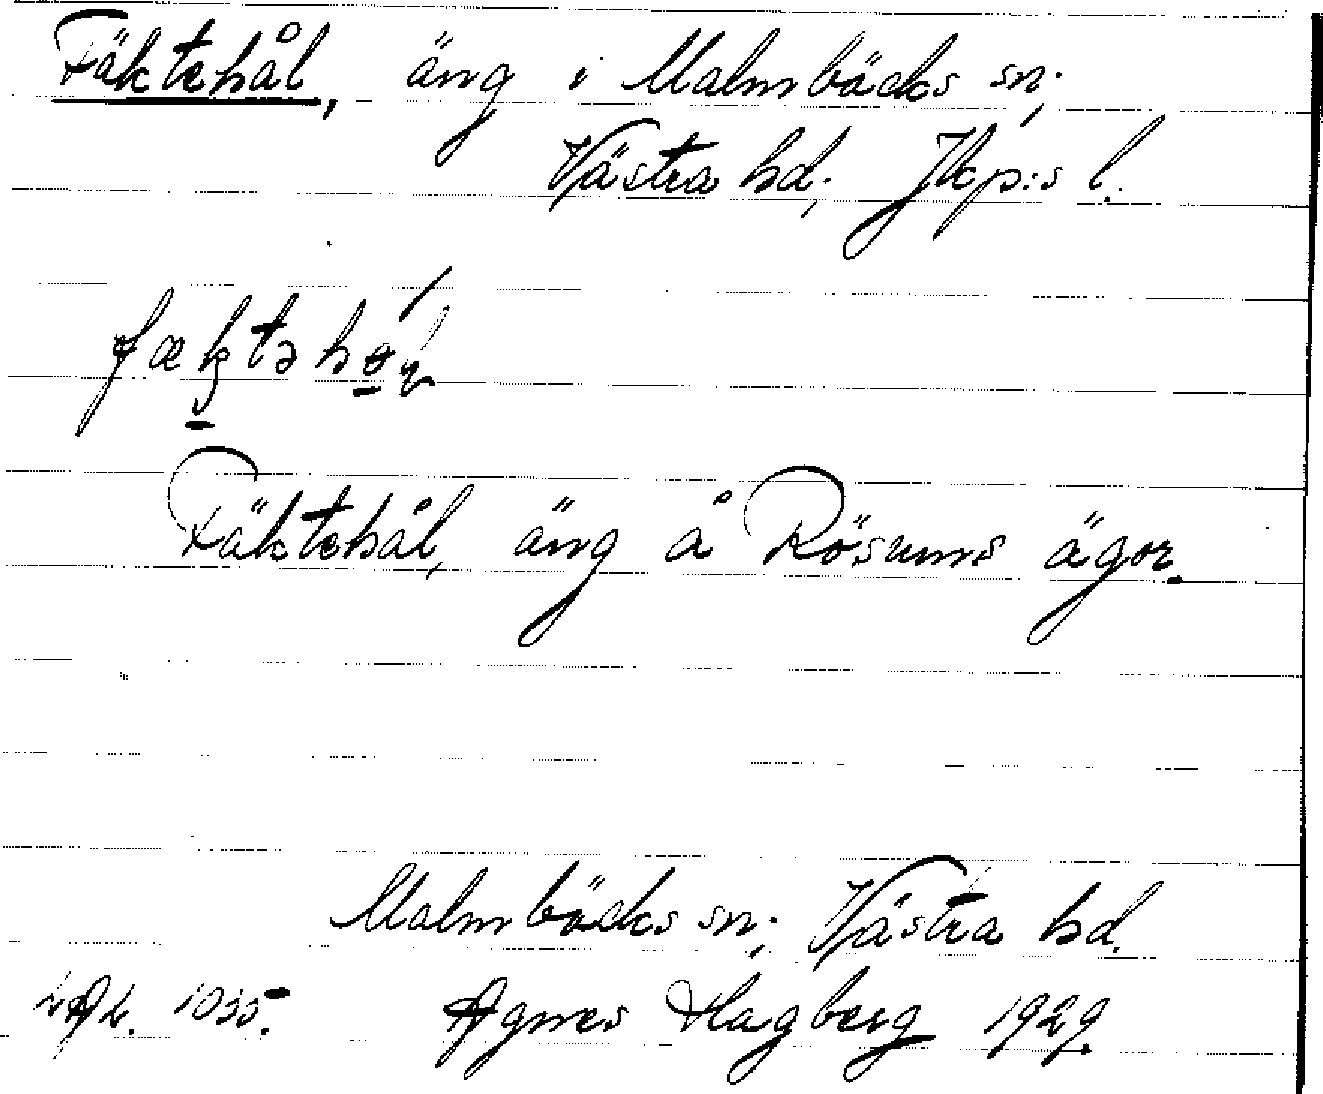 Fäktehål, äng i Malmbäcks sn;
Västra hd; Jkp:s l.
Fäktehål, äng å Rösums ägor.
Malmbäcks sn; Västra hd.
Agnes Hagberg 1929.